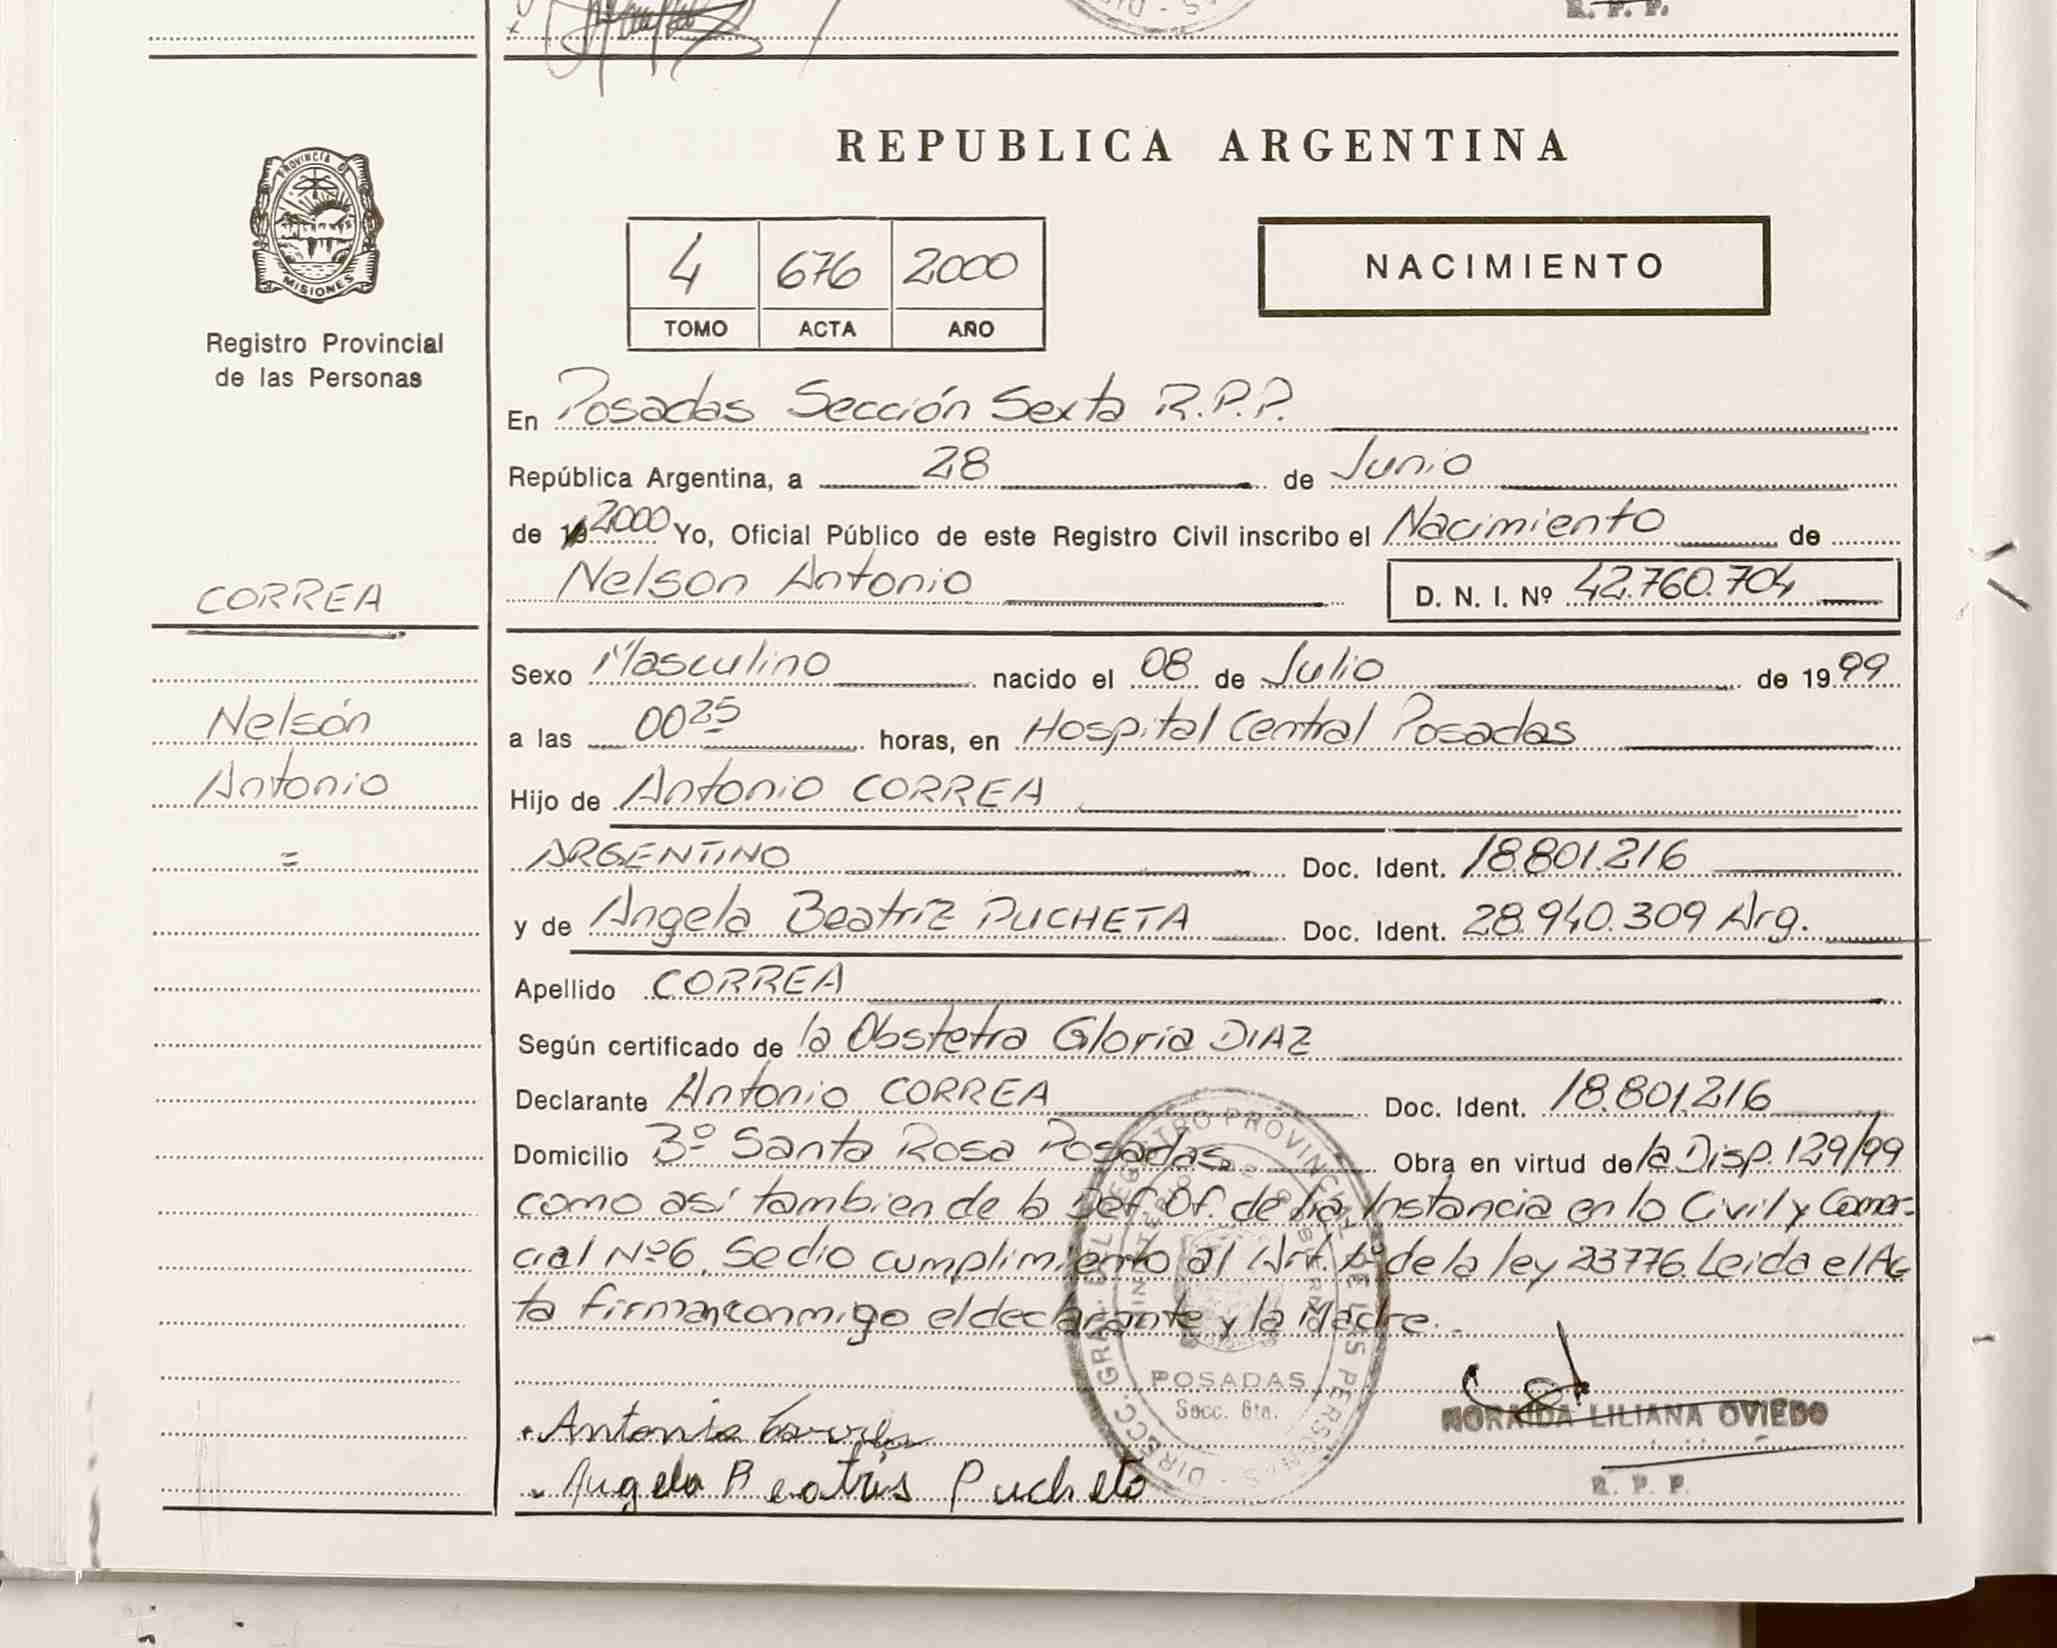 R. P. P.
PROVINCIA DE
MISIONES
Registro Provincial
de las Personas
REPUBLICA ARGENTINA
4 676 2000
TOMO ACTA AÑO
NACIMIENTO
En Posadas Sección Sexta R.P.P.
República Argentina, a 28 de Junio
de 2000 Yo, Oficial Público de este Registro Civil inscribo el Nacimiento de
Nelson Antonio D. N. I. Nº 42.760.704
CORREA
Nelsón
Antonio
=
Sexo Masculino nacido el 08 de Julio de 1999
a las 0025 horas, en Hospital Central Posadas
Hijo de Antonio CORREA
ARGENTINO Doc. Ident. 18.801.216
y de Angela Beatriz PUCHETA Doc. Ident. 28.940.309 Arg.
Apellido CORREA
Según certificado de la Obstetra Gloria DIAZ
Declarante Antonio CORREA Doc. Ident. 18.801.216
Domicilio Bº Santa Rosa Posadas Obra en virtud de la Disp. 129/99
como así tambien de la Def. Of. de Instancia en lo Civil y Comer-
cial Nº6. Se dio cumplimiento al Art. de la ley 23776. Leida el Ac
ta firman conmigo el declarante y la Madre.
DIRECC. GRAL. DEL REGISTRO PROVINCIAL DE LAS PERSONAS
POSADAS
Secc. 6ta.
Antonio Correa
Angela Beatris Pucheta
NORAIDA LILIANA OVIEDO
R. P. P.